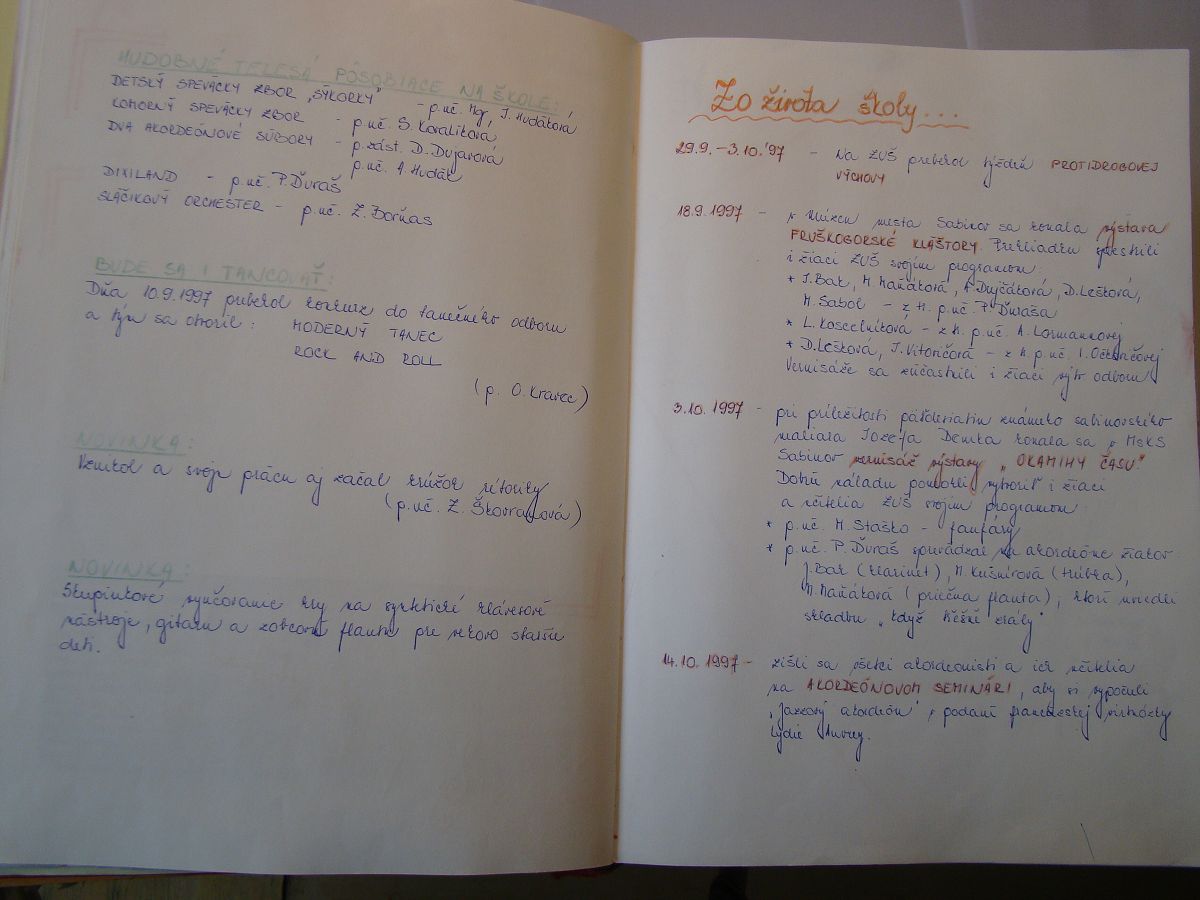 HUDOBNÉ TELESÁ PÔSOBIACE NA ŠKOLE:
DETSKÝ SPEVÁCKY ZBOR „SÝKORKY" - p. uč. Mgr. J. Hudáková
KOMORNÝ SPEVÁCKY ZBOR - p. uč. S. Kovalíková
DVA AKORDEÓNOVÉ SÚBORY - p. zást. D. Dujavová
p. uč. A. Hudák
DIXILAND - p. uč. P. Ďuraš
SLÁČIKOVÝ ORCHESTER - p. uč. Ž. Borňas
BUDE SA I TANCOVAŤ:
Dňa 10.9.1997 prebehol konkurz do tanečného odboru
a tým sa otvoril: MODERNÝ TANEC
ROCK AND ROLL
(p. O. Kravec)
NOVINKA:
Vznikol a svoju prácu aj začal krúžok rétoriky
(p. uč. Z. Škovranová)
NOVINKA:
Skupinkové vyučovanie hry na syntetické klávesové
nástroje, gitaru a zobcovú flautu pre vekovo staršie
deti.
Zo života školy...
29.9. - 3.10.'97 - Na ZUŠ prebehol týždeň PROTIDROGOVEJ
VÝCHOVY
18.9.1997 - v Múzeu mesta Sabinov sa konala výstava
FRUŠKOGORSKÉ KLÁŠTORY. Prehliadku spestrili
i žiaci ZUŠ svojim programom:
* J. Bak, M. Maňáková, A. Dujčáková, D. Lešková,
M. Sabol - z tr. p. uč. P. Ďuraša
* L. Koscelníková - z tr. p. uč. A. Lormankovej
* D. Lešková, J. Vitovičová - z tr. p. uč. I. Očkovičovej
Vernisáže sa zúčastnili i žiaci výtv. odboru
3.10.1997 - pri príležitosti päťdesiatin známeho sabinovského
maliara Jozefa Demka konala sa v MsKS
Sabinov vernisáž výstavy „OKAMIHY ČASU."
Dobrú náladu pomohli vytvoriť i žiaci
a učitelia ZUŠ svojim programom
* p. uč. M. Staško - fanfáry
* p. uč. P. Ďuraš sprevádzal na akordeóne žiakov
J. Bak (klarinet), M. Kušnírová (trúbka),
M. Maňáková (priečna flauta), ktorí uviedli
skladbu „Když těšně zrály"
14.10.1997 - zišli sa všetci akordeonisti a ich učitelia
na AKORDEÓNOVOM SEMINÁRI, aby si vypočuli
„Jazzový akordeón" v podaní francúzskej virtuózky
Lydie Auvrey.